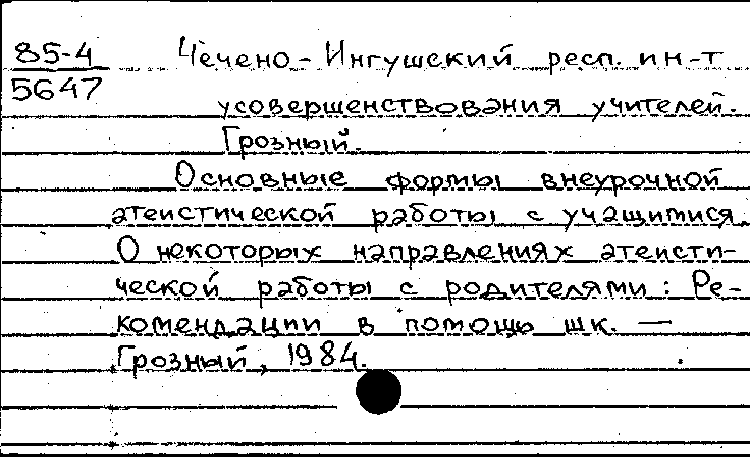 85-4 Чечено-Ингушский респ. ин-т
5647
усовершенствования учителей.
Грозный.
Основные формы внеурочной
атеистической работы с учащимися.
О некоторых направлениях атеисти-
ческой работы с родителями: Ре-
комендации в помощь шк. —
Грозный, 1984.